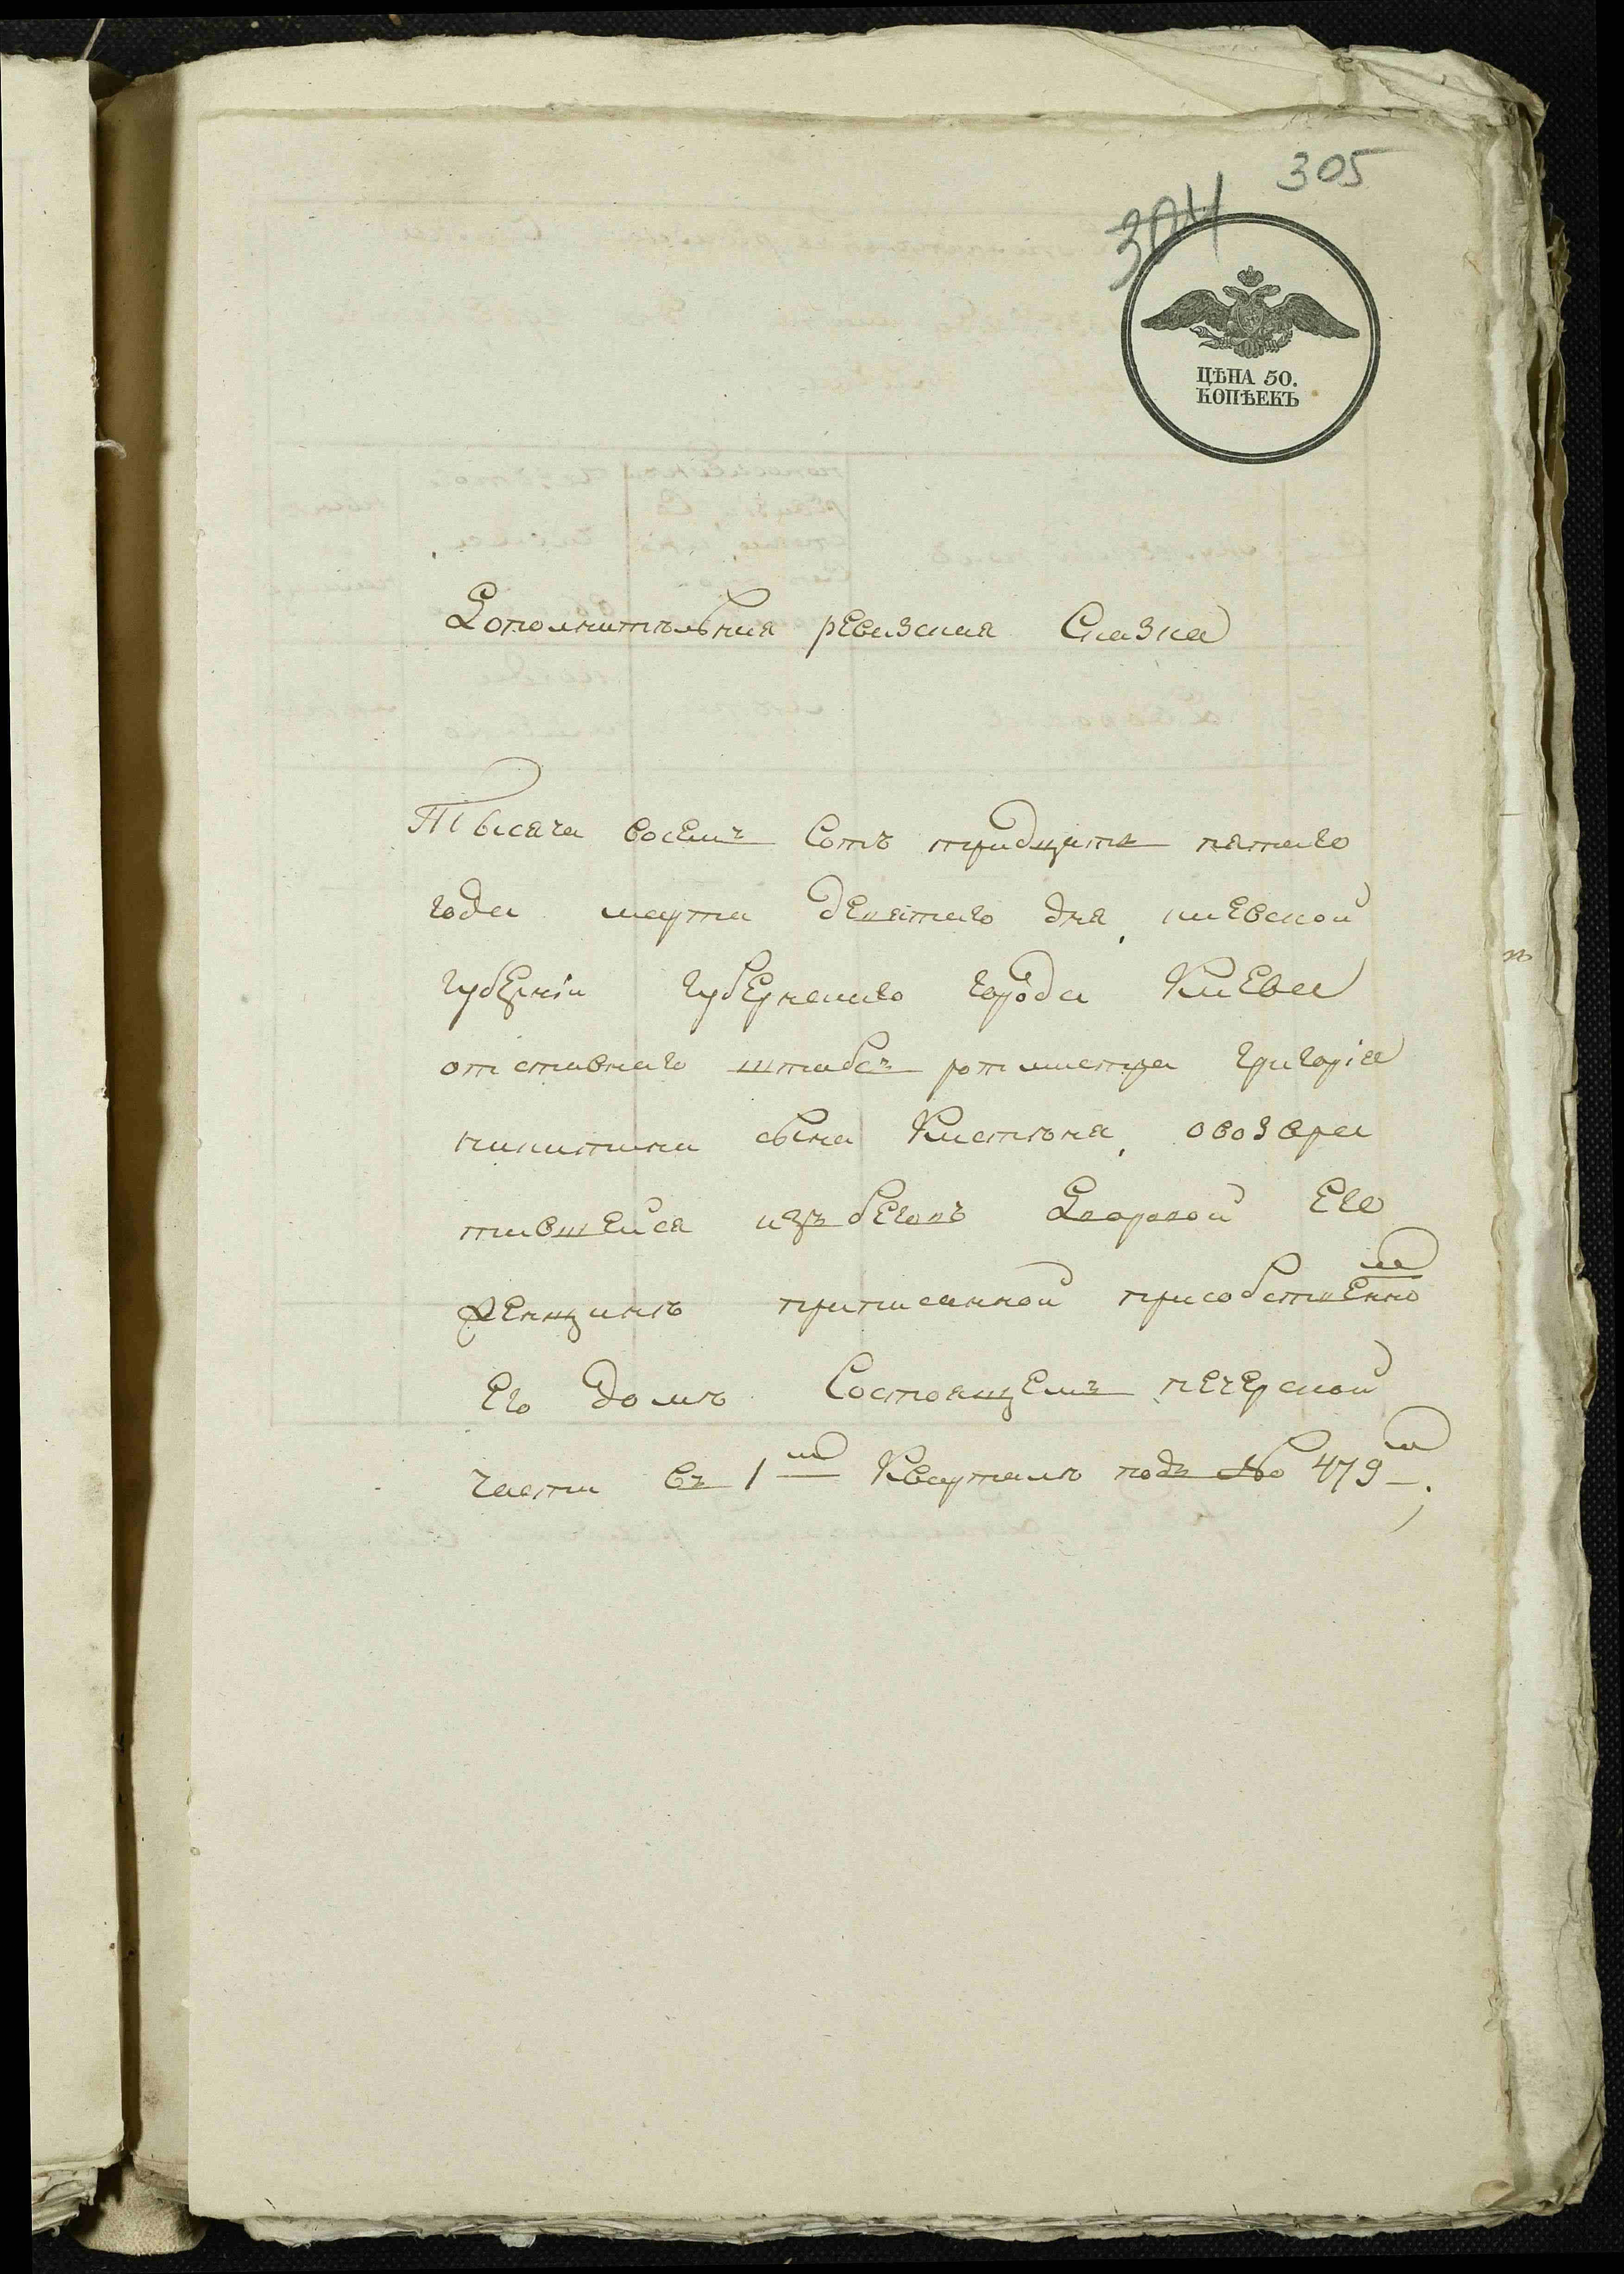 305
304
ЦѢНА 50.
КОПѢЕКЪ
Дополнительная ревизская Сказка
Тысяча восемъ Сотъ тридцать пятаго
года марта девятаго дня, киевской
губерніи губернскаго города Киева
отставнаго штабсъ ротмистра григорія
никитина сына Кистѣня, овозвра
тившейся изъ беговъ Дворовой Его
женщинѣ приписанной присобственно м
Его домѣ Состоящемъ печерской
части въ 1м Кварталѣ подъ № 479м.